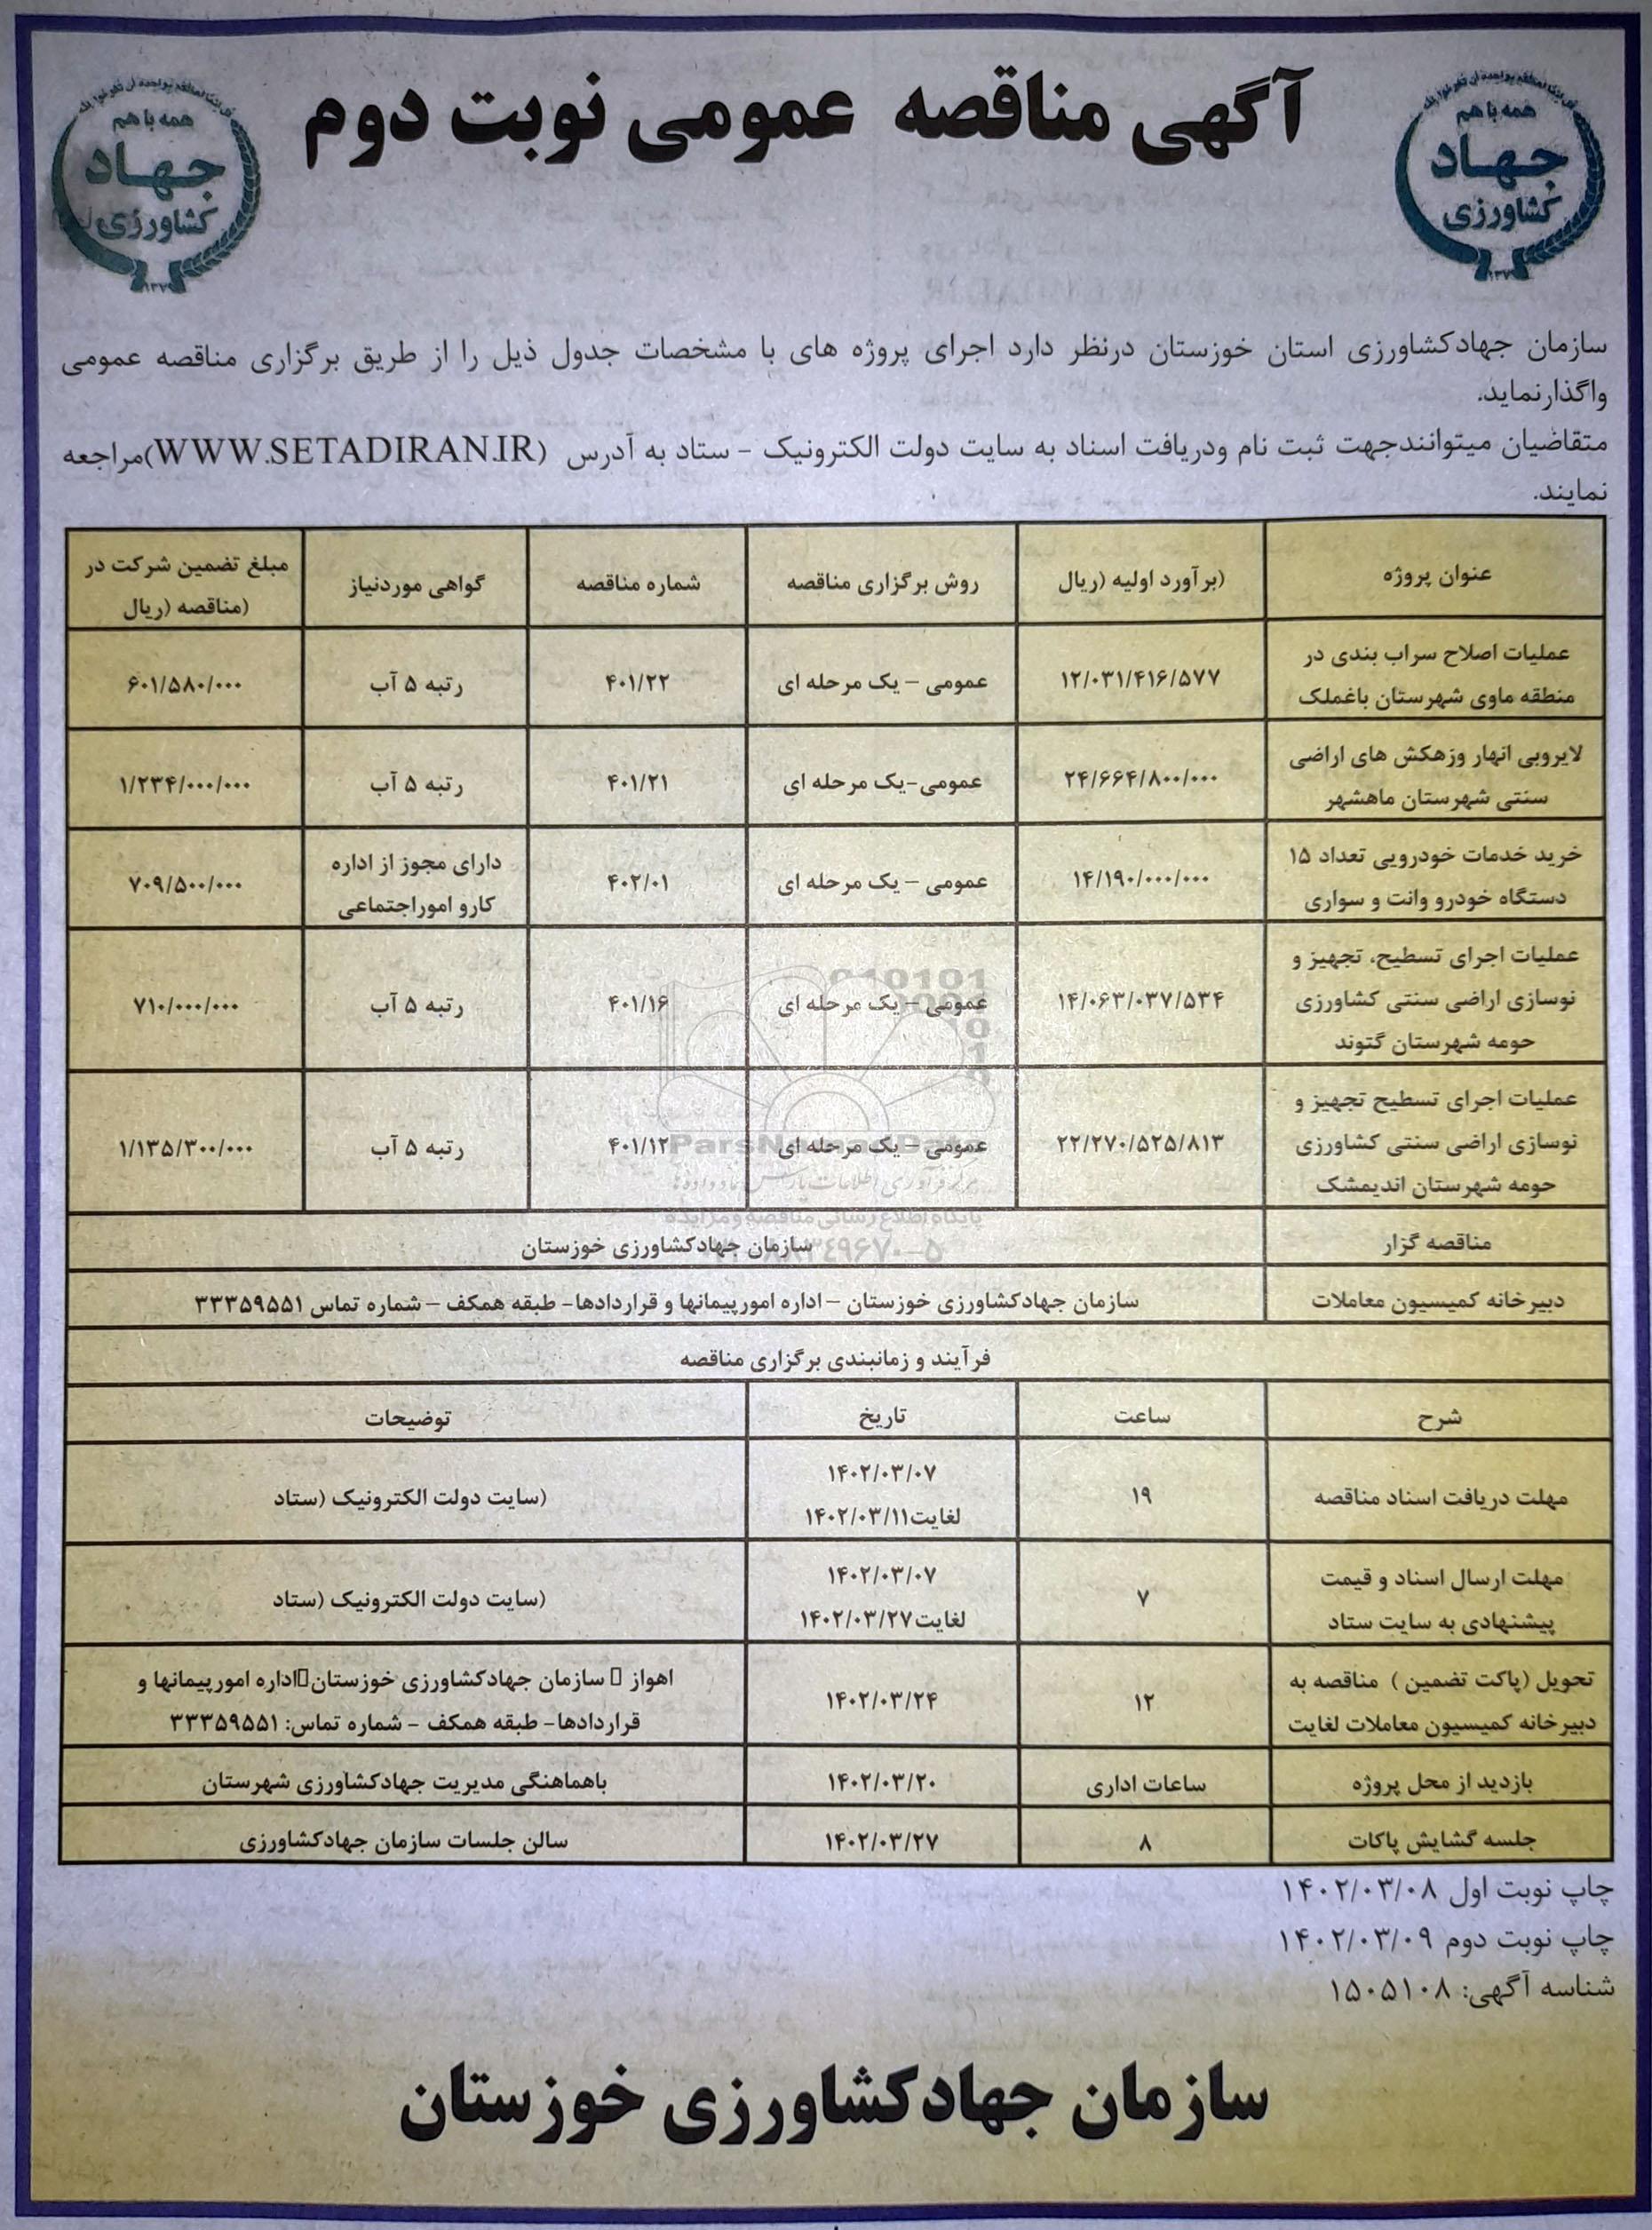 آگهی مناقصه عمومی نوبت دوم
همه با هم
جهاد
کشاورزی
همه با هم
جهاد
کشاورزی
سازمان جهادکشاورزی استان خوزستان درنظر دارد اجرای پروژه های با مشخصات جدول ذیل را از طریق برگزاری مناقصه عمومی
واگذارنماید.
متقاضیان میتوانندجهت ثبت نام ودریافت اسناد به سایت دولت الکترونیک - ستاد به آدرس (WWW.SETADIRAN.IR)مراجعه
نمایند.
عنوان پروژه | (برآورد اولیه (ریال | روش برگزاری مناقصه | شماره مناقصه | گواهی موردنیاز | مبلغ تضمین شرکت در (مناقصه (ریال
عملیات اصلاح سراب بندی در منطقه ماوی شهرستان باغملک | ۱۲/۰۳۱/۴۱۶/۵۷۷ | عمومی – یک مرحله ای | ۴۰۱/۲۲ | رتبه ۵ آب | ۶۰۱/۵۸۰/۰۰۰
لایروبی انهار وزهکش های اراضی سنتی شهرستان ماهشهر | ۲۴/۶۶۴/۸۰۰/۰۰۰ | عمومی-یک مرحله ای | ۴۰۱/۲۱ | رتبه ۵ آب | ۱/۲۳۴/۰۰۰/۰۰۰
خرید خدمات خودرویی تعداد ۱۵ دستگاه خودرو وانت و سواری | ۱۴/۱۹۰/۰۰۰/۰۰۰ | عمومی – یک مرحله ای | ۴۰۲/۰۱ | دارای مجوز از اداره کارو اموراجتماعی | ۷۰۹/۵۰۰/۰۰۰
عملیات اجرای تسطیح، تجهیز و نوسازی اراضی سنتی کشاورزی حومه شهرستان گتوند | ۱۴/۰۶۳/۰۳۷/۵۳۴ | عمومی – یک مرحله ای | ۴۰۱/۱۶ | رتبه ۵ آب | ۷۱۰/۰۰۰/۰۰۰
عملیات اجرای تسطیح تجهیز و نوسازی اراضی سنتی کشاورزی حومه شهرستان اندیمشک | ۲۲/۲۷۰/۵۲۵/۸۱۳ | عمومی – یک مرحله ای | ۴۰۱/۱۲ | رتبه ۵ آب | ۱/۱۳۵/۳۰۰/۰۰۰
مناقصه گزار | سازمان جهادکشاورزی خوزستان
دبیرخانه کمیسیون معاملات | سازمان جهادکشاورزی خوزستان – اداره امورپیمانها و قراردادها- طبقه همکف – شماره تماس ۳۳۳۵۹۵۵۱
فرآیند و زمانبندی برگزاری مناقصه
شرح | ساعت | تاریخ | توضیحات
مهلت دریافت اسناد مناقصه | ۱۹ | ۱۴۰۲/۰۳/۰۷ لغایت۱۴۰۲/۰۳/۱۱ | (سایت دولت الکترونیک (ستاد
مهلت ارسال اسناد و قیمت پیشنهادی به سایت ستاد | ۷ | ۱۴۰۲/۰۳/۰۷ لغایت۱۴۰۲/۰۳/۲۷ | (سایت دولت الکترونیک (ستاد
تحویل (پاکت تضمین ) مناقصه به دبیرخانه کمیسیون معاملات لغایت | ۱۲ | ۱۴۰۲/۰۳/۲۴ | اهواز سازمان جهادکشاورزی خوزستان اداره امورپیمانها و قراردادها- طبقه همکف - شماره تماس: ۳۳۳۵۹۵۵۱
بازدید از محل پروژه | ساعات اداری | ۱۴۰۲/۰۳/۲۰ | باهماهنگی مدیریت جهادکشاورزی شهرستان
جلسه گشایش پاکات | ۸ | ۱۴۰۲/۰۳/۲۷ | سالن جلسات سازمان جهادکشاورزی
چاپ نوبت اول ۱۴۰۲/۰۳/۰۸
چاپ نوبت دوم ۱۴۰۲/۰۳/۰۹
شناسه آگهی: ۱۵۰۵۱۰۸
سازمان جهادکشاورزی خوزستان